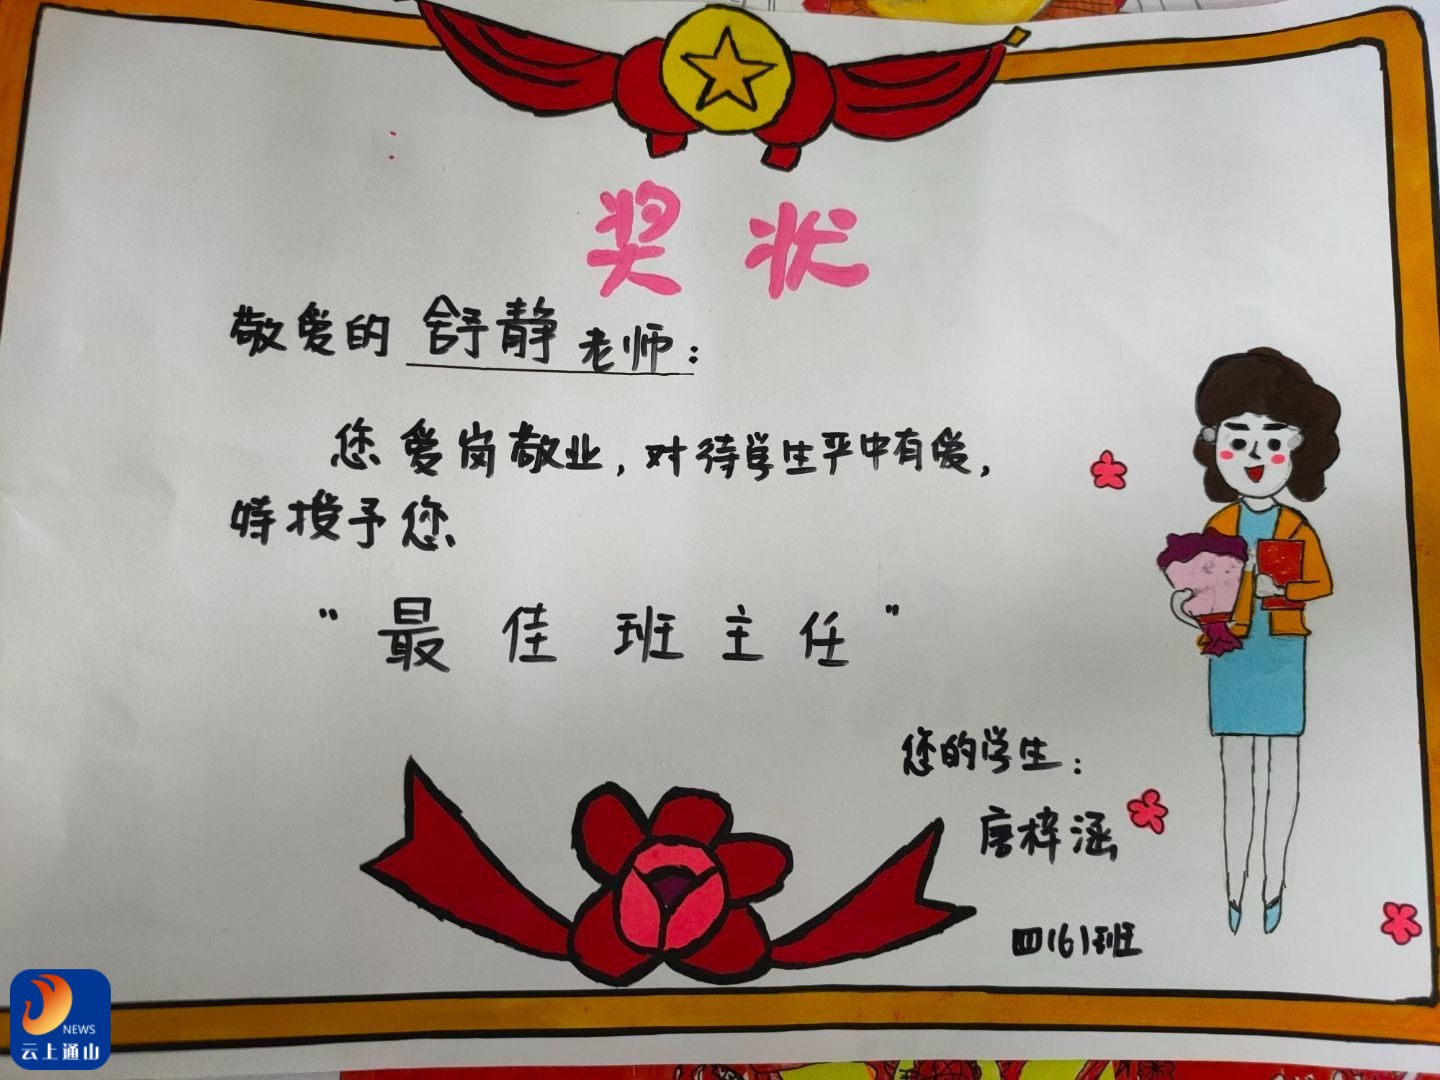 奖状
敬爱的 舒静 老师：
您爱岗敬业，对待学生严中有爱，
特授予您
“最佳班主任”
您的学生：
唐梓涵
四(6)班
NEWS
云上通山